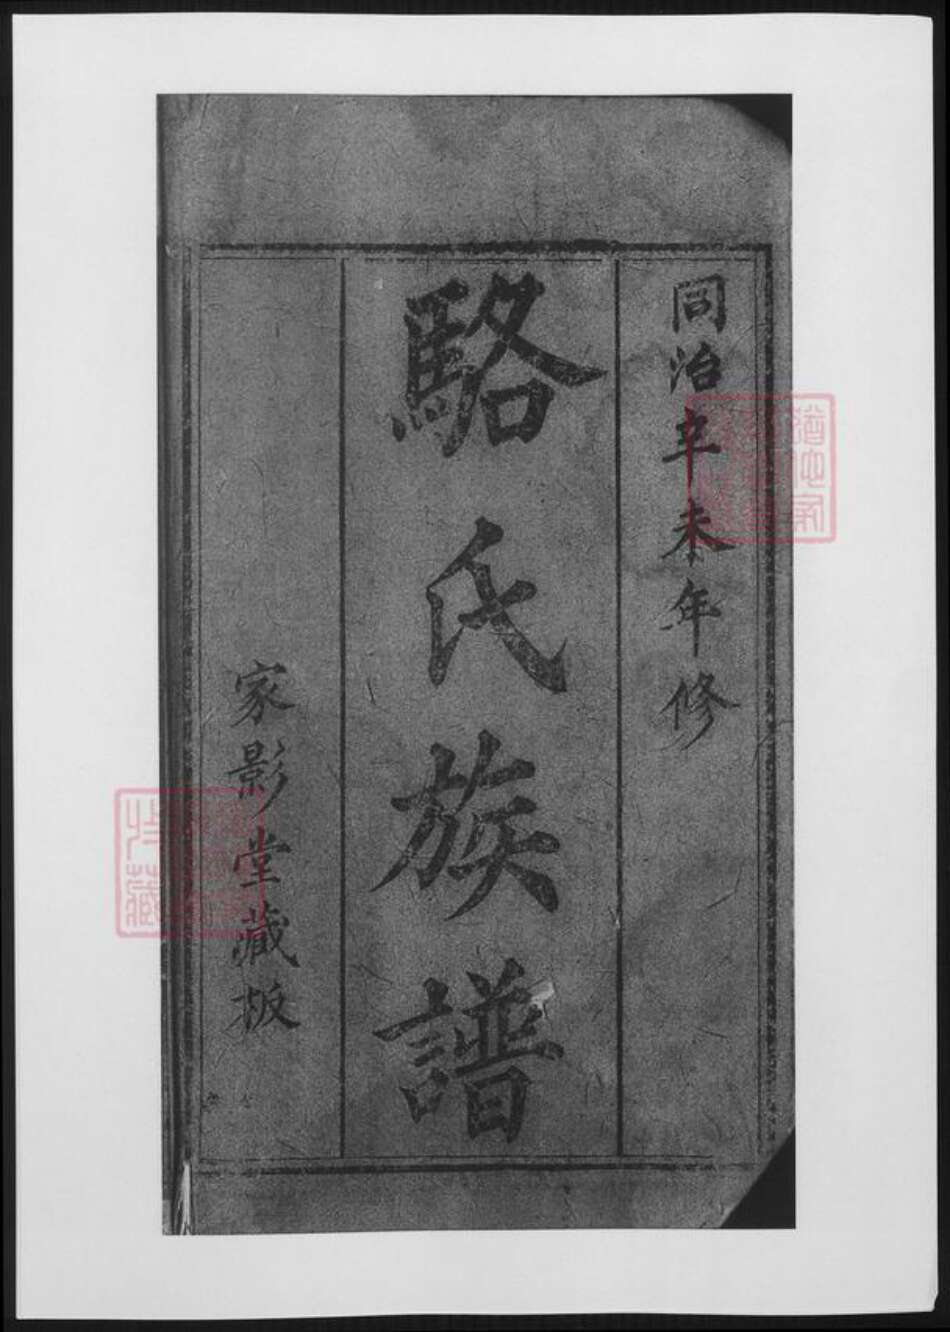 同治辛未年修
駱氏族譜
家影堂藏板